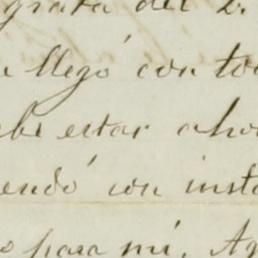 grata del 2.
llegó con to
be estar aho
endó con inst
o para mi. Ag